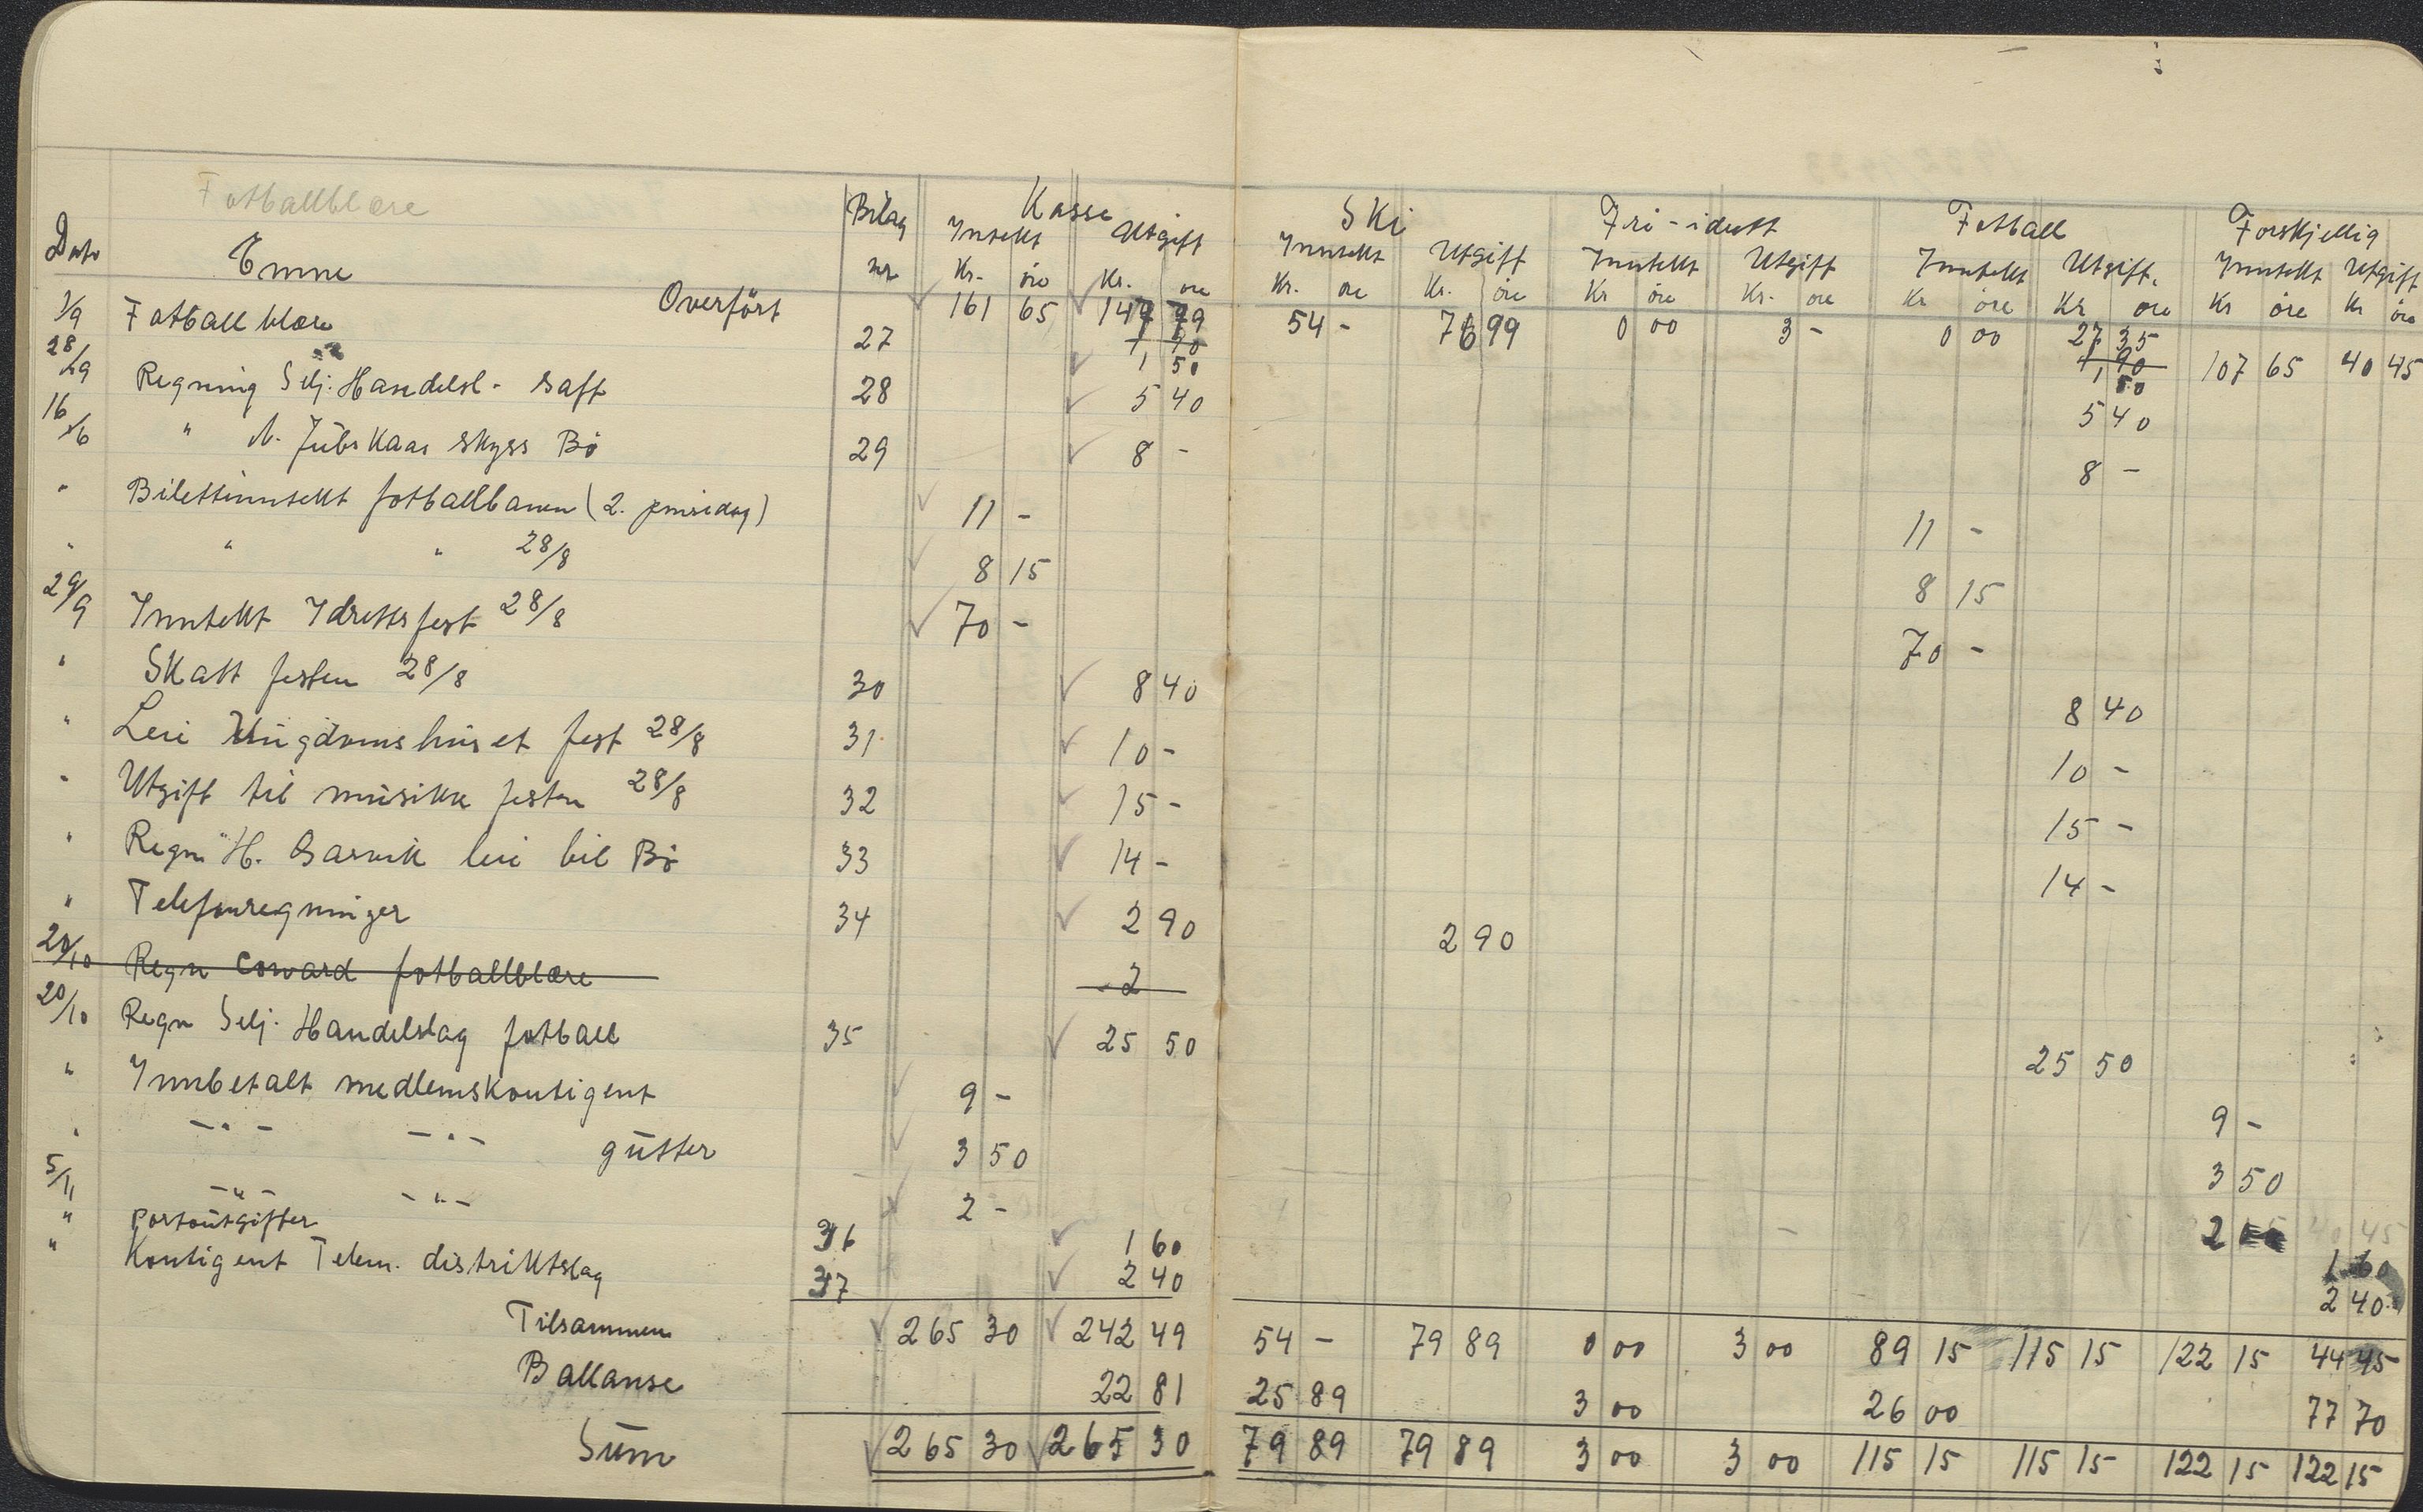 Fotballblære
Dato Emne Bilag nr Kasse Ski Fri-idrett Fotball Forskjellig
Intekt Utgift Inntekt Utgift Inntekt Utgift Inntekt Utgift. Inntekt Utgift
Kr. øre Kr. øre Kr. øre Kr. øre Kr øre Kr. øre Kr øre Kr øre Kr øre Kr øre
Overført 161 65 147 79 54 - 76 99 0 00 3 - 0 00 27 35 107 65 40 45
1/9 Fotballblære 27 1 90 1 50 1 90 1 50
28/9 Regning Selj. Handelsl. saft 28 5 40 5 40
16/6 " skyss Bø 29 8 - 8 -
" Bilettinntekt fotballbanen (2. pinsedag) 11 - 11 -
" " " 28/8 8 15 8 15
29/9 Inntekt Idrettsfest 28/8 70 - 70 -
" Skatt festen 28/8 30 8 40 8 40
" Leie Ungdomshuset fest 28/8 31 10 - 10 -
" Utgift til musikk festen 28/8 32 15 - 15 -
" Regn H. leie bil Bø 33 14 - 14 -
" Telefonregninger 34 2 90 2 90
20/10 Regn Coward fotballblære 2
20/10 Regn Selj. Handelslag fotball 35 25 50 25 50
" Innbetalt medlemskontigent 9 - 9 -
" -"- -"- gutter 3 50 3 50
5/11 -"- -"- 2 - 2
" Portoutgifter 36 1 60 1 60
" Kontigent Telem. distriktslag 37 2 40 2 40
Tilsammen 265 30 242 49 54 - 79 89 0 00 3 00 89 15 115 15 122 15 44 45
Ballanse 22 81 25 89 3 00 26 00 77 70
Sum 265 30 265 30 79 89 79 89 3 00 3 00 115 15 115 15 122 15 122 15